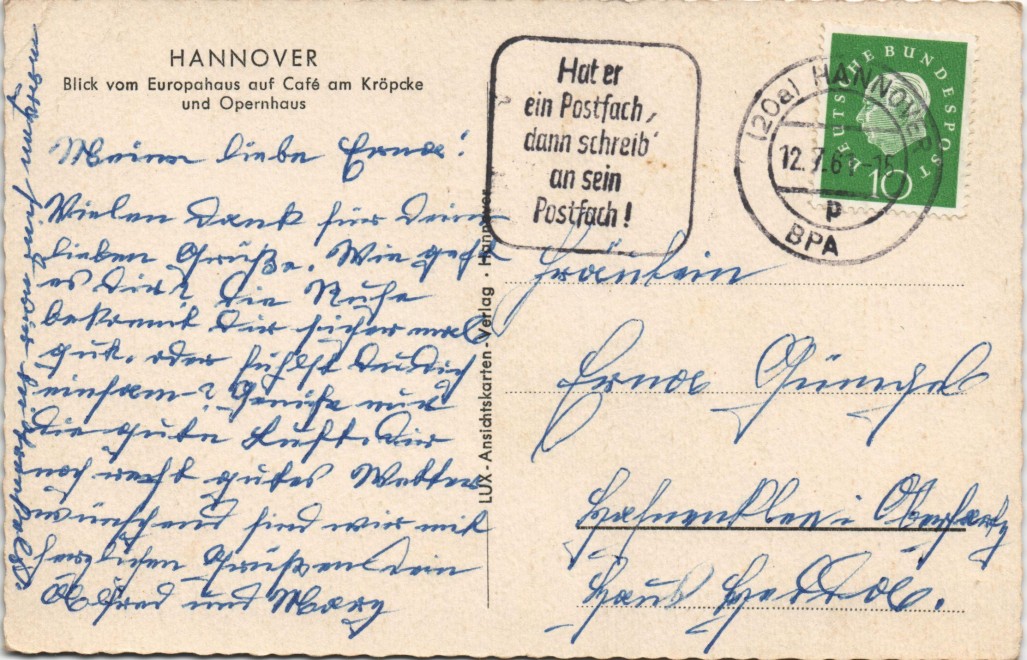 HANNOVER
Blick vom Europahaus auf Café am Kröpcke
und Opernhaus
Meine liebe Erna!
Vielen Dank für Deine
lieben Grüße. Wie geht
es Dir? Die Ruhe
bekommt Dir sicher mal
gut. oder fühlst Du Dich
einsam? Genieße nur
die gute Luft. Dir
noch recht gutes Wetter
wünschend sind wir mit
herzlichen Grüßen Dein
Alfred und Mary
von
LUX-Ansichtskarten-Verlag · Hannover
Hat er
ein Postfach,
dann schreib'
an sein
Postfach!
(20a) HANNOVER
12.7.61-16
p
BPA
DEUTSCHE BUNDESPOST
10
Fräulein
Erna Günchel
Hahnenklee i Oberharz
Haus Hedda.